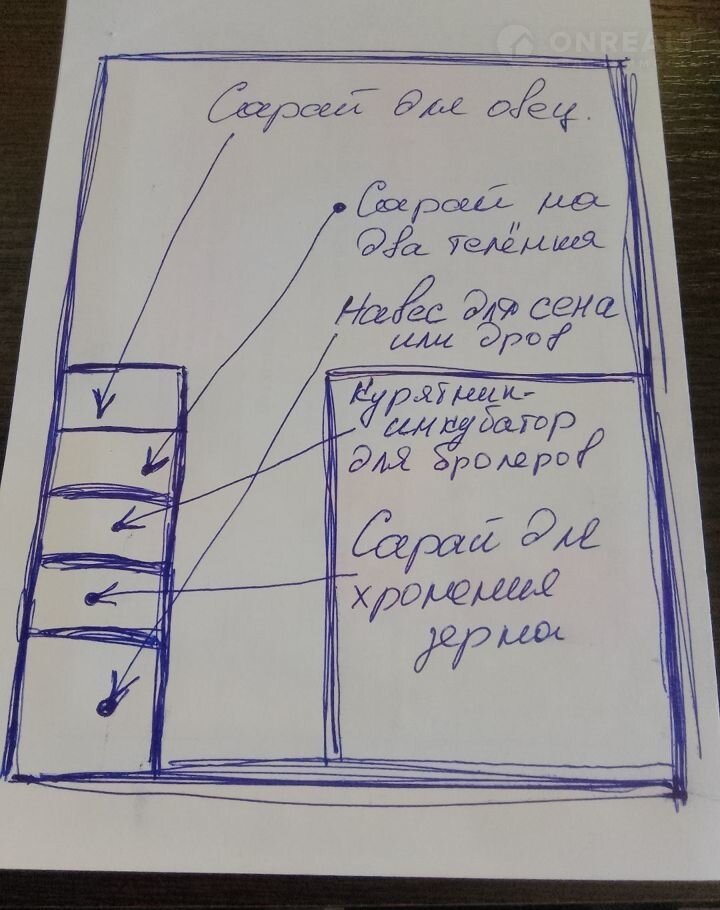 ONREALT
Сарай для овец.
Сарай на
два телёнка
Навес для сена
или дров
Курятник-
инкубатор
для бролеров
Сарай для
хронения
зерна